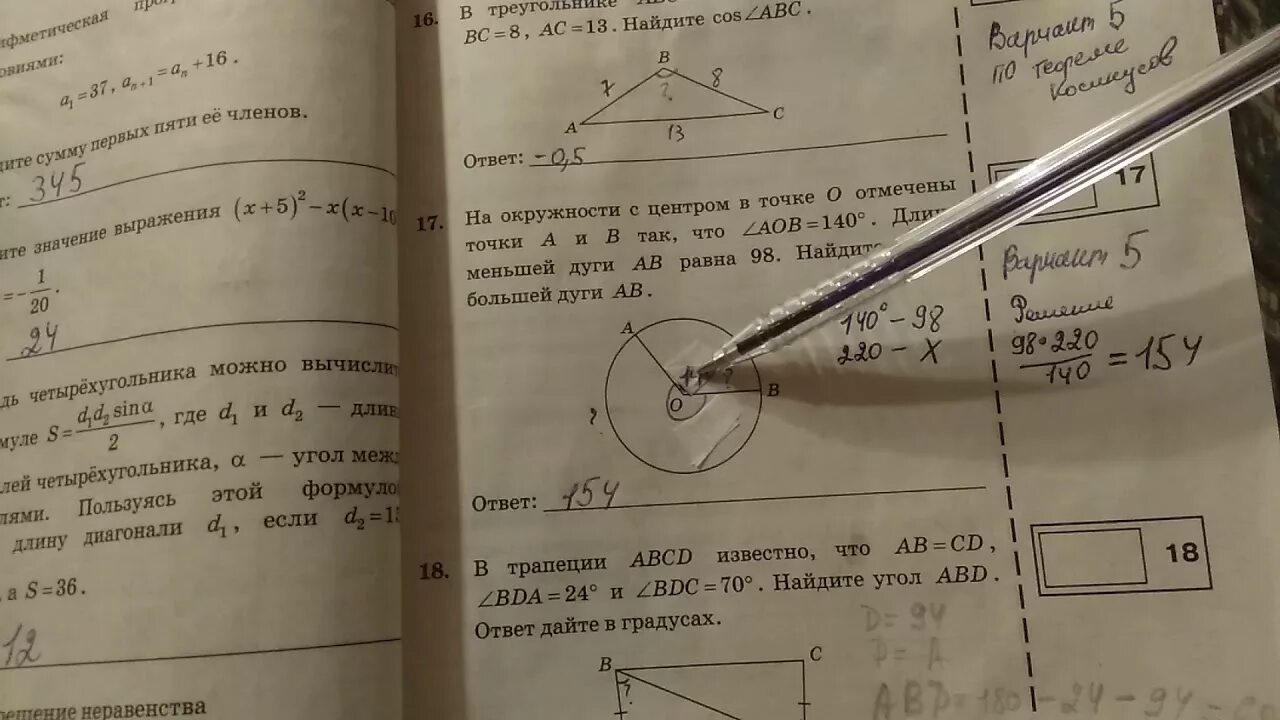 ифметическая
овиями:
a₁=37, aₙ₊₁=aₙ+16.
дите сумму первых пяти её членов.
т: 345
ите значение выражения (x+5)²−x(x−10
=−1/20.
24
дь четырёхугольника можно вычислит
муле S=d₁d₂sinα/2, где d₁ и d₂ — длин
лей четырёхугольника, α — угол меж
лями. Пользуясь этой формуло
длину диагонали d₁, если d₂=1
а S=36.
12
ешение неравенства
16. В треугольнике
BC=8, AC=13. Найдите cos∠ABC.
B
7
?
8
A
13
C
Ответ: −0,5
17. На окружности с центром в точке O отмечены
точки A и B так, что ∠AOB=140°. Дли
меньшей дуги AB равна 98. Найдите
большей дуги AB.
A
?
B
O
?
140° − 98
220 − X
Ответ: 154
18. В трапеции ABCD известно, что AB=CD,
∠BDA=24° и ∠BDC=70°. Найдите угол ABD.
Ответ дайте в градусах.
D= 94
D= A
ABD=180−24−94−
B
C
?
Вариант 5
по теореме
косинусов
17
Вариант 5
Решение
98·220/140 = 154
18